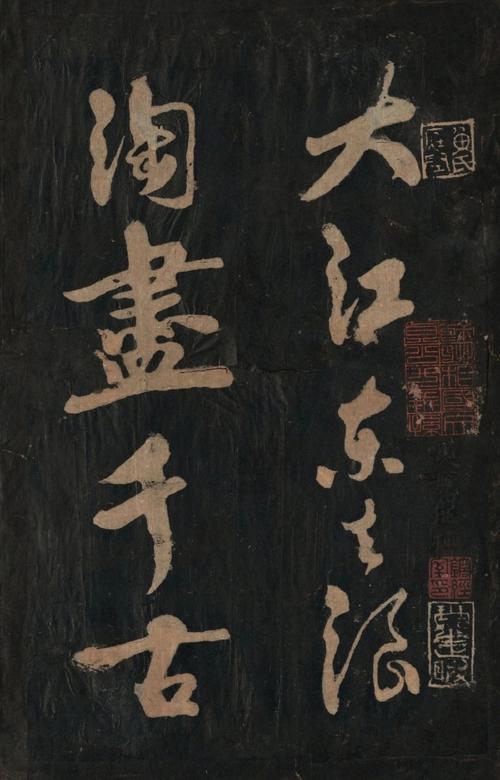 大江东去浪
淘盡千古